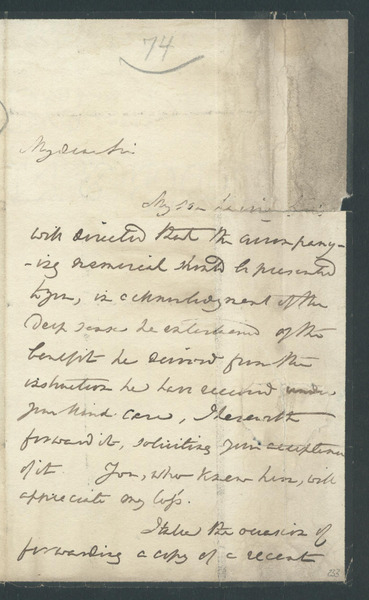 74
My dear Sir
My son having in his
will directed that the accompany-
-ing memorial should be presented
to you, in acknowledgment of the
deep sense he entertained of the
benefit he derived from the
instruction he had received under
your kind care, I herewith
forward it, soliciting your acceptance
of it. You, who knew him, will
appreciate my loss.
I take the occasion of
forwarding a copy of a recent
133